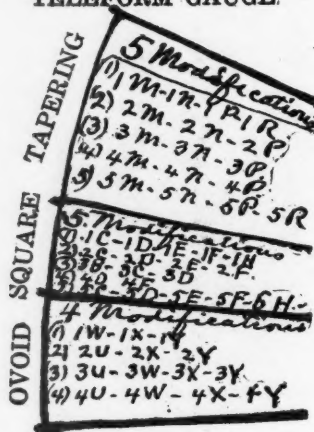 TELEFORM GAUGE
TAPERING
5 Modifications
(1) 1M-1N-1P1R
(2) 2M-2N-2P
(3) 3M-3N-3P
(4) 4M-4N-4P
5) 5M-5N-5P-5R
SQUARE
5 Modifications
1C-1D-1E-1F-1H
2D-2E-2F
3C-3D
4D-4F
5D-5E-5F-5H
OVOID
4 Modifications
(1) 1W-1X-1Y
2) 2U-2X-2Y
3) 3U-3W-3X-3Y
(4) 4U-4W-4X-4Y